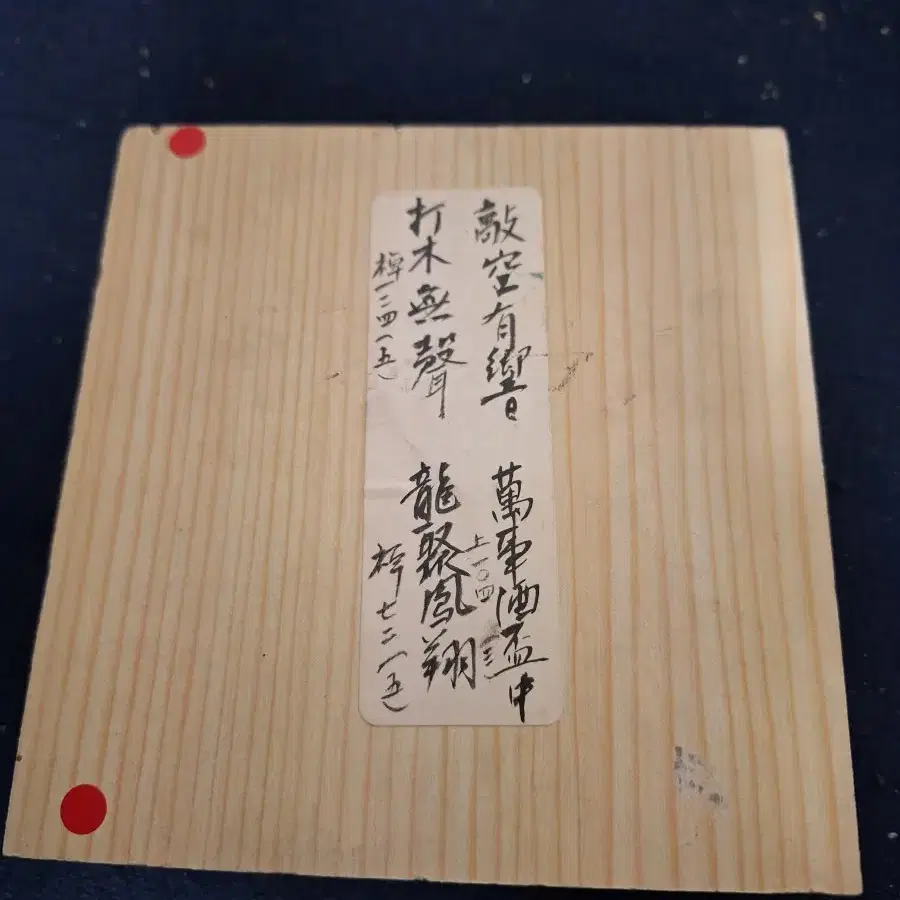 敲空有響
萬事酒盃中
上一〇四
打木無聲
龍聚鳳翔
一二四(五)
七二(五)